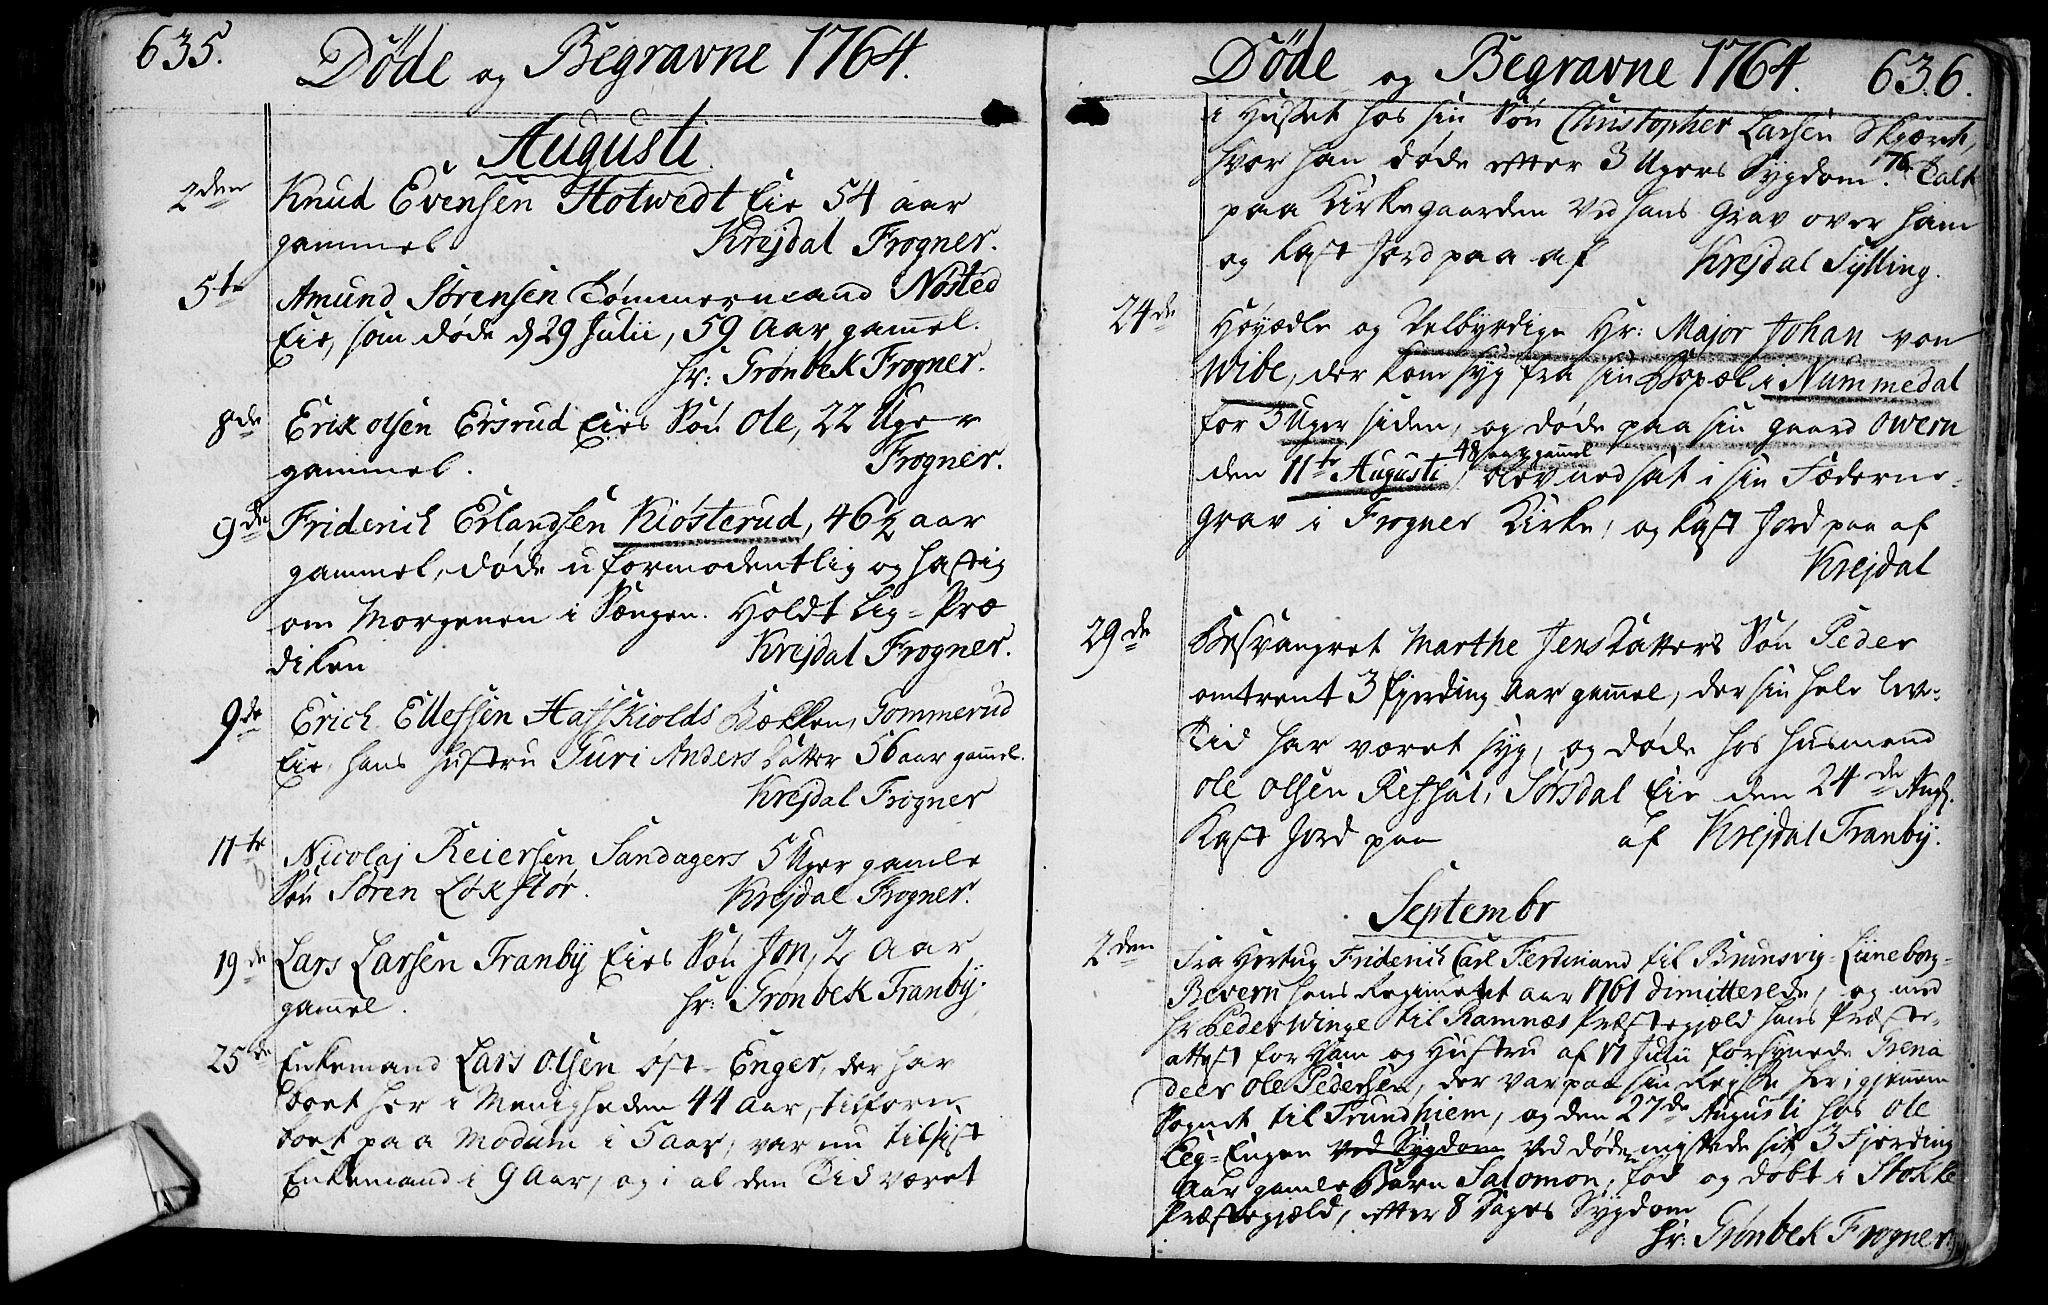 635.
Döde og Begravne 1764.
Augusti
2den Knud Evensen Hotwedt Eie 54 aar
gammel Krejdal Frogner.
5te Amund Sörensen Tömmermand Nösted
Eie, som döde d 29 Julii, 59 Aar gam̅el.
Hr: Grönbek Frogner.
8de Erik olsen Ersrud Eies Sön Ole, 22 Uger
gammel. Frogner.
9de Friderich Erlandsen Kiösterud, 46½ aar
gammel, döde uformodentlig og hastig
om Morgenen i Sengen. Holdt Lig-Præ
diken Krejdal Frogner.
9de Erich Ellefsen Hafskiolds Bækken, Gommerud
Eie, hans Hustru Guri Anders datter 56 aar gam̅el.
Krejdal Frogner
11te Nicolaj Reiersen Sandagers 5 Uger gamle
Sön Sören Lökstör. Krejdal Frogner.
19de Lars Larsen Tranby Eies Sön Jon, 2 Aar
gam̅el. Hr: Grönbek Tranby.
25de Enkemand Lars Olsen öst-Enger, der har
boet her i Menigheden 44 Aar, tilforn
boet paa Modum i 5 aar, var nu tilsidst
Enkemand i 9 Aar, og i al den Tid været
Döde og Begravne 1764. 636.
i Huset hos sin Sön Christopher Larsen Skjæret,
hvor han döde efter 3 Ugers Sygdom. 76. Talt
paa Kirkegaarden ved hans Grav over ham
og kast Jord paa af Krejdal Sylling.
24de Höyædle og Velbyrdige Hr: Major Johan von
Wibe, der kom syg fra sin Bopæl i Nummedal
for 3 Uger siden, og döde paa sin gaard Owern
den 11te Augusti 48 aar gam̅el, blev nedsat i sin Fæderne-
Grav i Frogner Kirke, og kast Jord paa af
Krejdal
29de Besvangret Marthe Jensdatters Sön Peder
omtrent 3 fjerding Aar gam̅el, der sin hele leve-
Tid har været syg, og döde hos Husmand
Ole Olsen Refsal, Sörsdal Eie den 24de Aug.
Kast Jord paa af Krejdal Tranby.
Septembr
2den Fra Hertug Friderich Carl Ferdinand til Brunsvig-Lüneborg-
Bevern hans Regimetet aar 1761 dimitterede, og med
Hr Peder Winge til Ramnæs Præstegjæld hans Præste-
attest for Ham og Hustru af 17 Julii forsynede Grena
deer Ole Pedersen, der var paa sin Rejse her igjennem
Sognet til Trundhiem, og den 27de Augusti hos Ole
Leg-Engen ved Sygdom ved döden mistede sit 3 Fjerding
Aar gamle Barn Salomon, fod og döbt i Stokke
Præstegjæld, efter 8 Dages Sygdom
Hr: Grönbek Frogner.